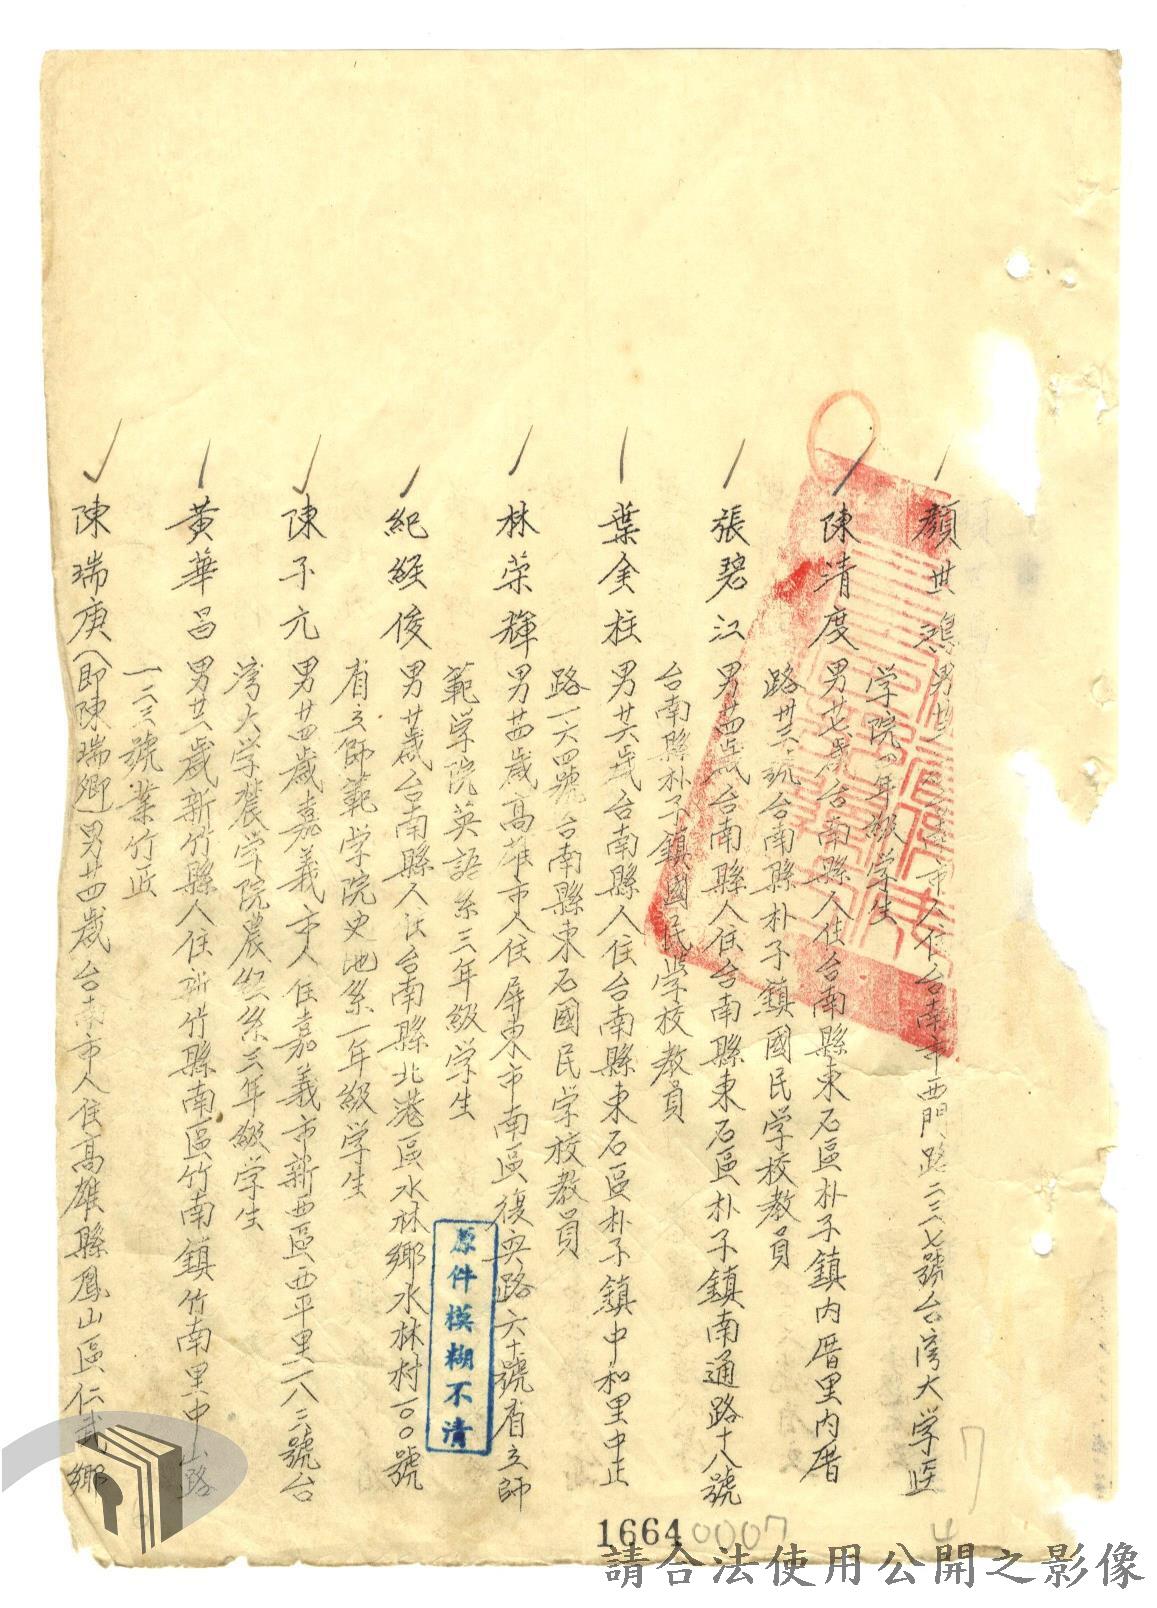 顏世鴻男 市人住台南市西門路二三七號台湾大学医
学院四年級学生
陳清度男廿七歲台南縣人住台南縣東石區朴子鎮內厝里內厝
路卅三號台南縣朴子鎮國民学校教員
張碧江男廿四歲台南縣人住台南縣東石區朴子鎮南通路十八號
台南縣朴子鎮國民学校教員
葉金柱男廿六歲台南縣人住台南縣東石區朴子鎮中和里中正
路一六四號台南縣東石國民学校教員
林荣輝男廿四歲高雄市人住屏東市南區復興路六十號省立師
範学院英語系三年級学生
紀經俊男廿歲台南縣人住台南縣北港區水林鄉水林村一00號
省立師範学院史地系一年級学生
陳子元男廿四歲嘉義市人住嘉義市新西區西平里二八三號台
湾大学農学院農經系三年級学生
黃華昌男廿二歲新竹縣人住新竹縣南區竹南鎮竹南里中山路
一二三號業竹匠
陳瑞庚(即陳瑞鄉)男廿四歲台南市人住高雄縣鳳山區仁武鄉
原件模糊不清
1664
0007
請合法使用公開之影像